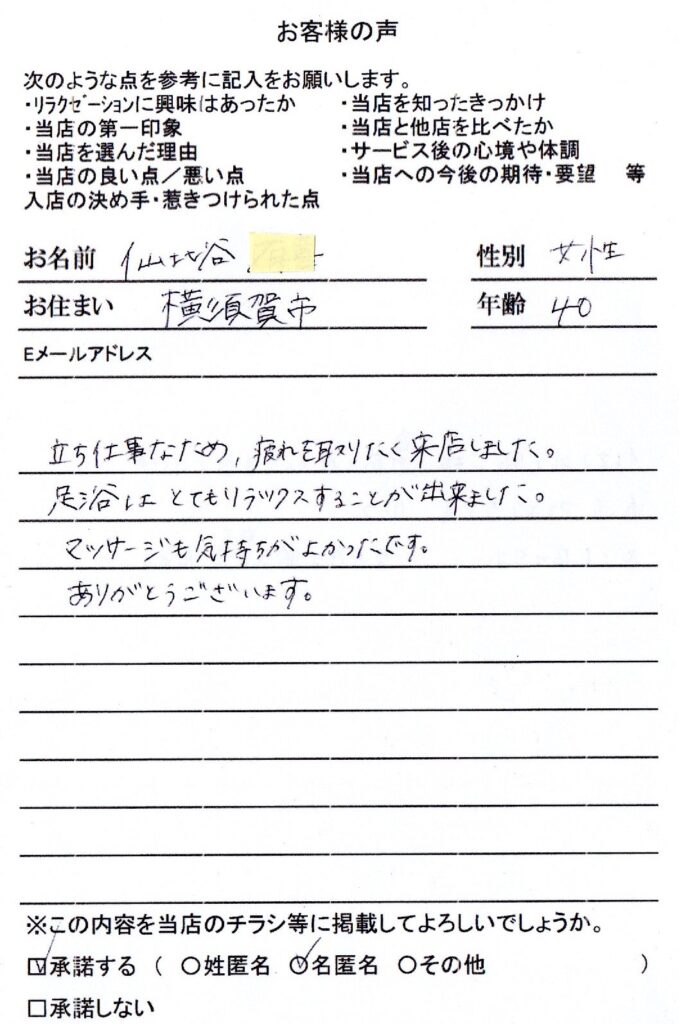 お客様の声
次のような点を参考に記入をお願いします。
・リラクゼーションに興味はあったか ・当店を知ったきっかけ
・当店の第一印象 ・当店と他店を比べたか
・当店を選んだ理由 ・サービス後の心境や体調
・当店の良い点／悪い点 ・当店への今後の期待・要望 等
入店の決め手・惹きつけられた点
お名前 仙北谷 性別 女性
お住まい 横須賀市 年齢 40
Eメールアドレス
立ち仕事なため、疲れを取りたく来店しました。
足浴はとてもリラックスすることが出来ました。
マッサージも気持ちがよかったです。
ありがとうございます。
※この内容を当店のチラシ等に掲載してよろしいでしょうか。
☑承諾する（ ○姓匿名 ○名匿名 ○その他 ）
□承諾しない